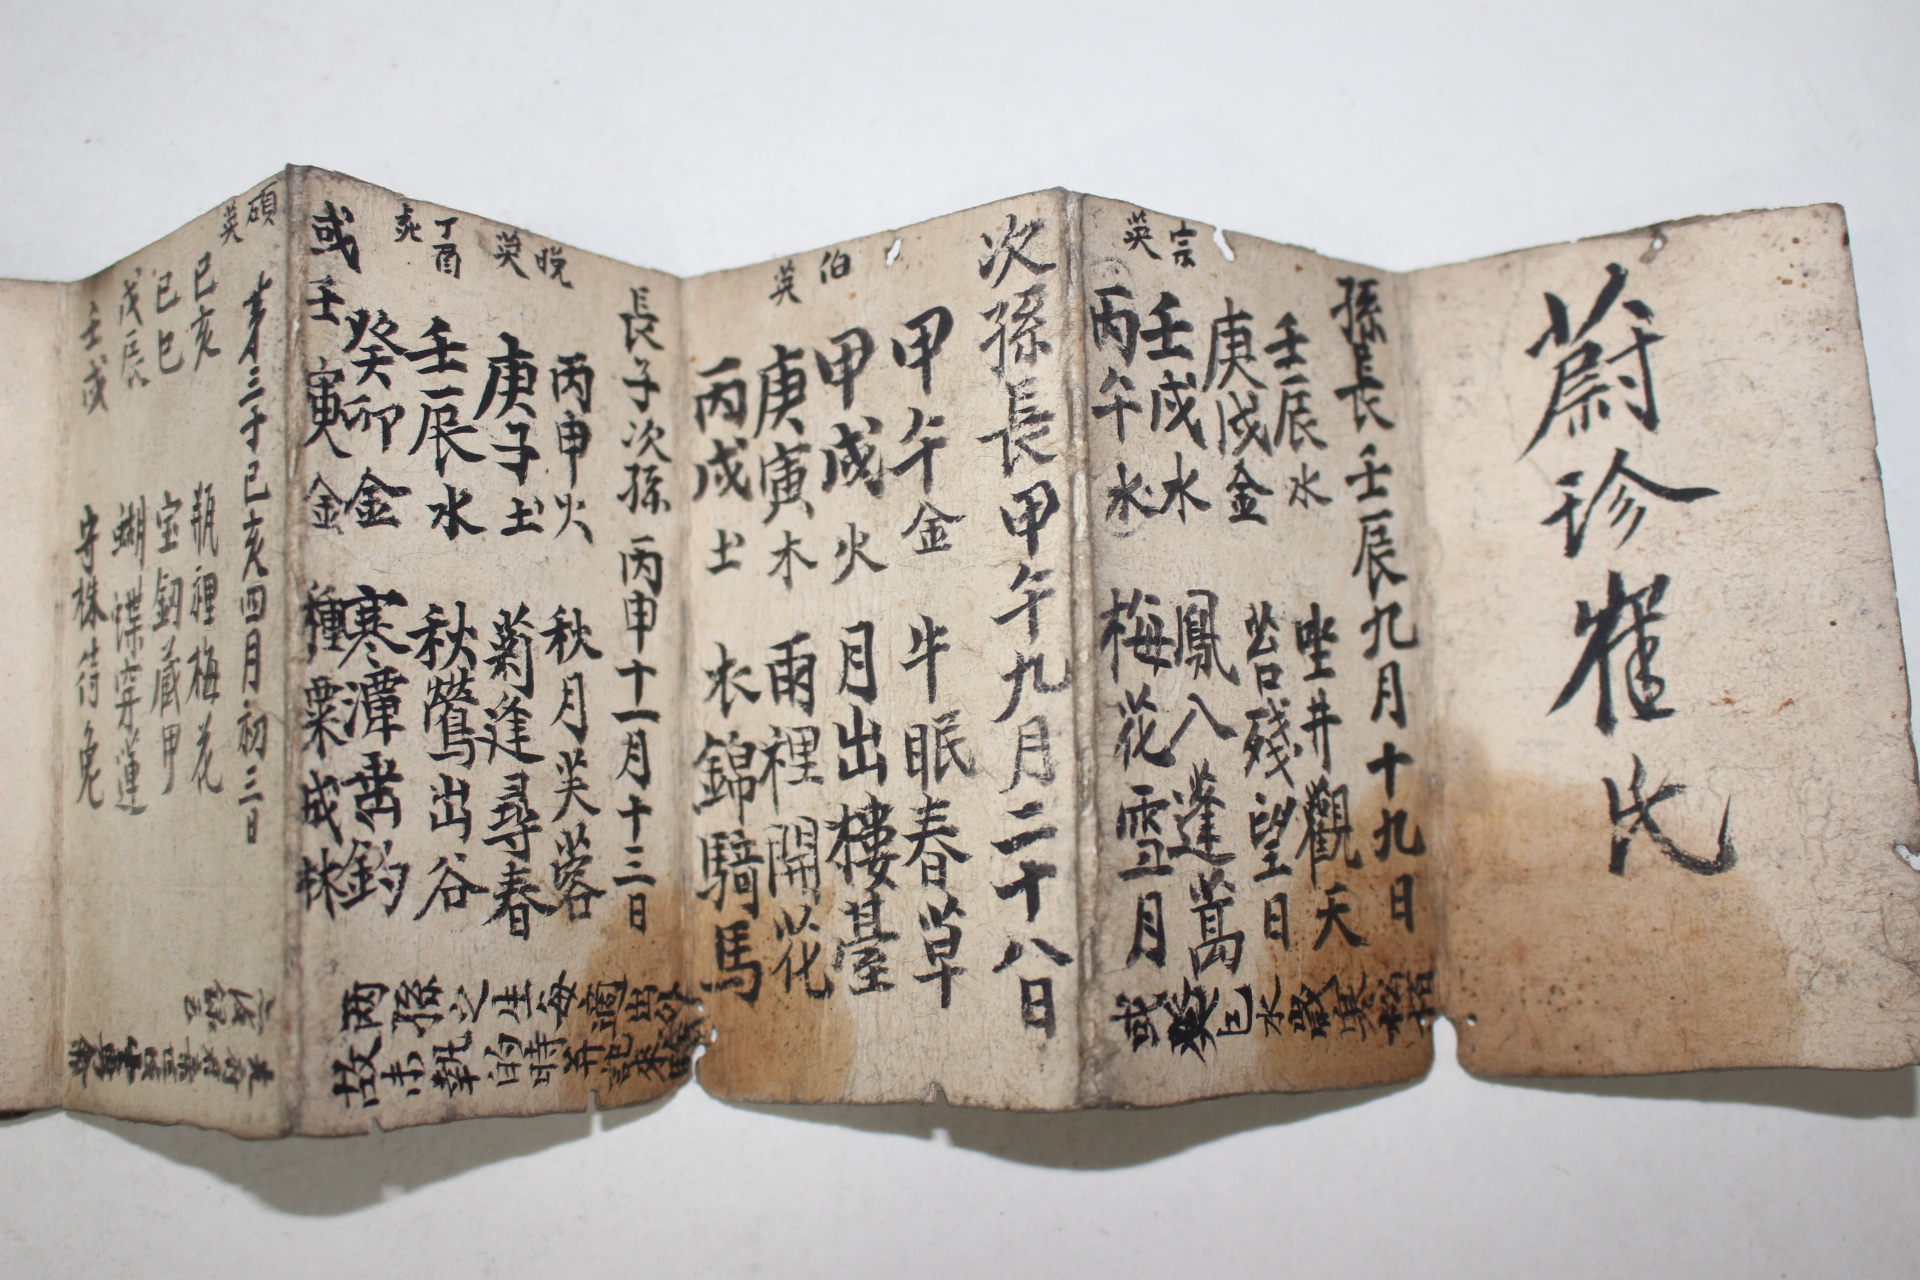 蔚珍崔氏
孫長壬辰九月十九日
宗英
壬辰水 坐井觀天
庚戌金 㫘殘望日
壬戌水 鳳入蓬萬
丙午水 梅花雪月
次孫長甲午九月二十八日
伯英
甲午金 牛眠春草
甲戌火 月出樓臺
庚寅木 雨裡開花
丙戌土 衣錦騎馬
長子次孫丙申十一月十三日
晩英
丙申火 秋月芙蓉
庚子土 菊逢尋春
丁酉
壬辰水 秋鶯出谷
癸卯金 寒潭垂釣
或壬寅金 種粟成林
孫
兩
故
第三子己亥四月初三日
碩英
己亥 瓶裡梅花
己巳 宝釰藏甲
戊辰 蝴蝶穿蓮
壬戌 守株待兔